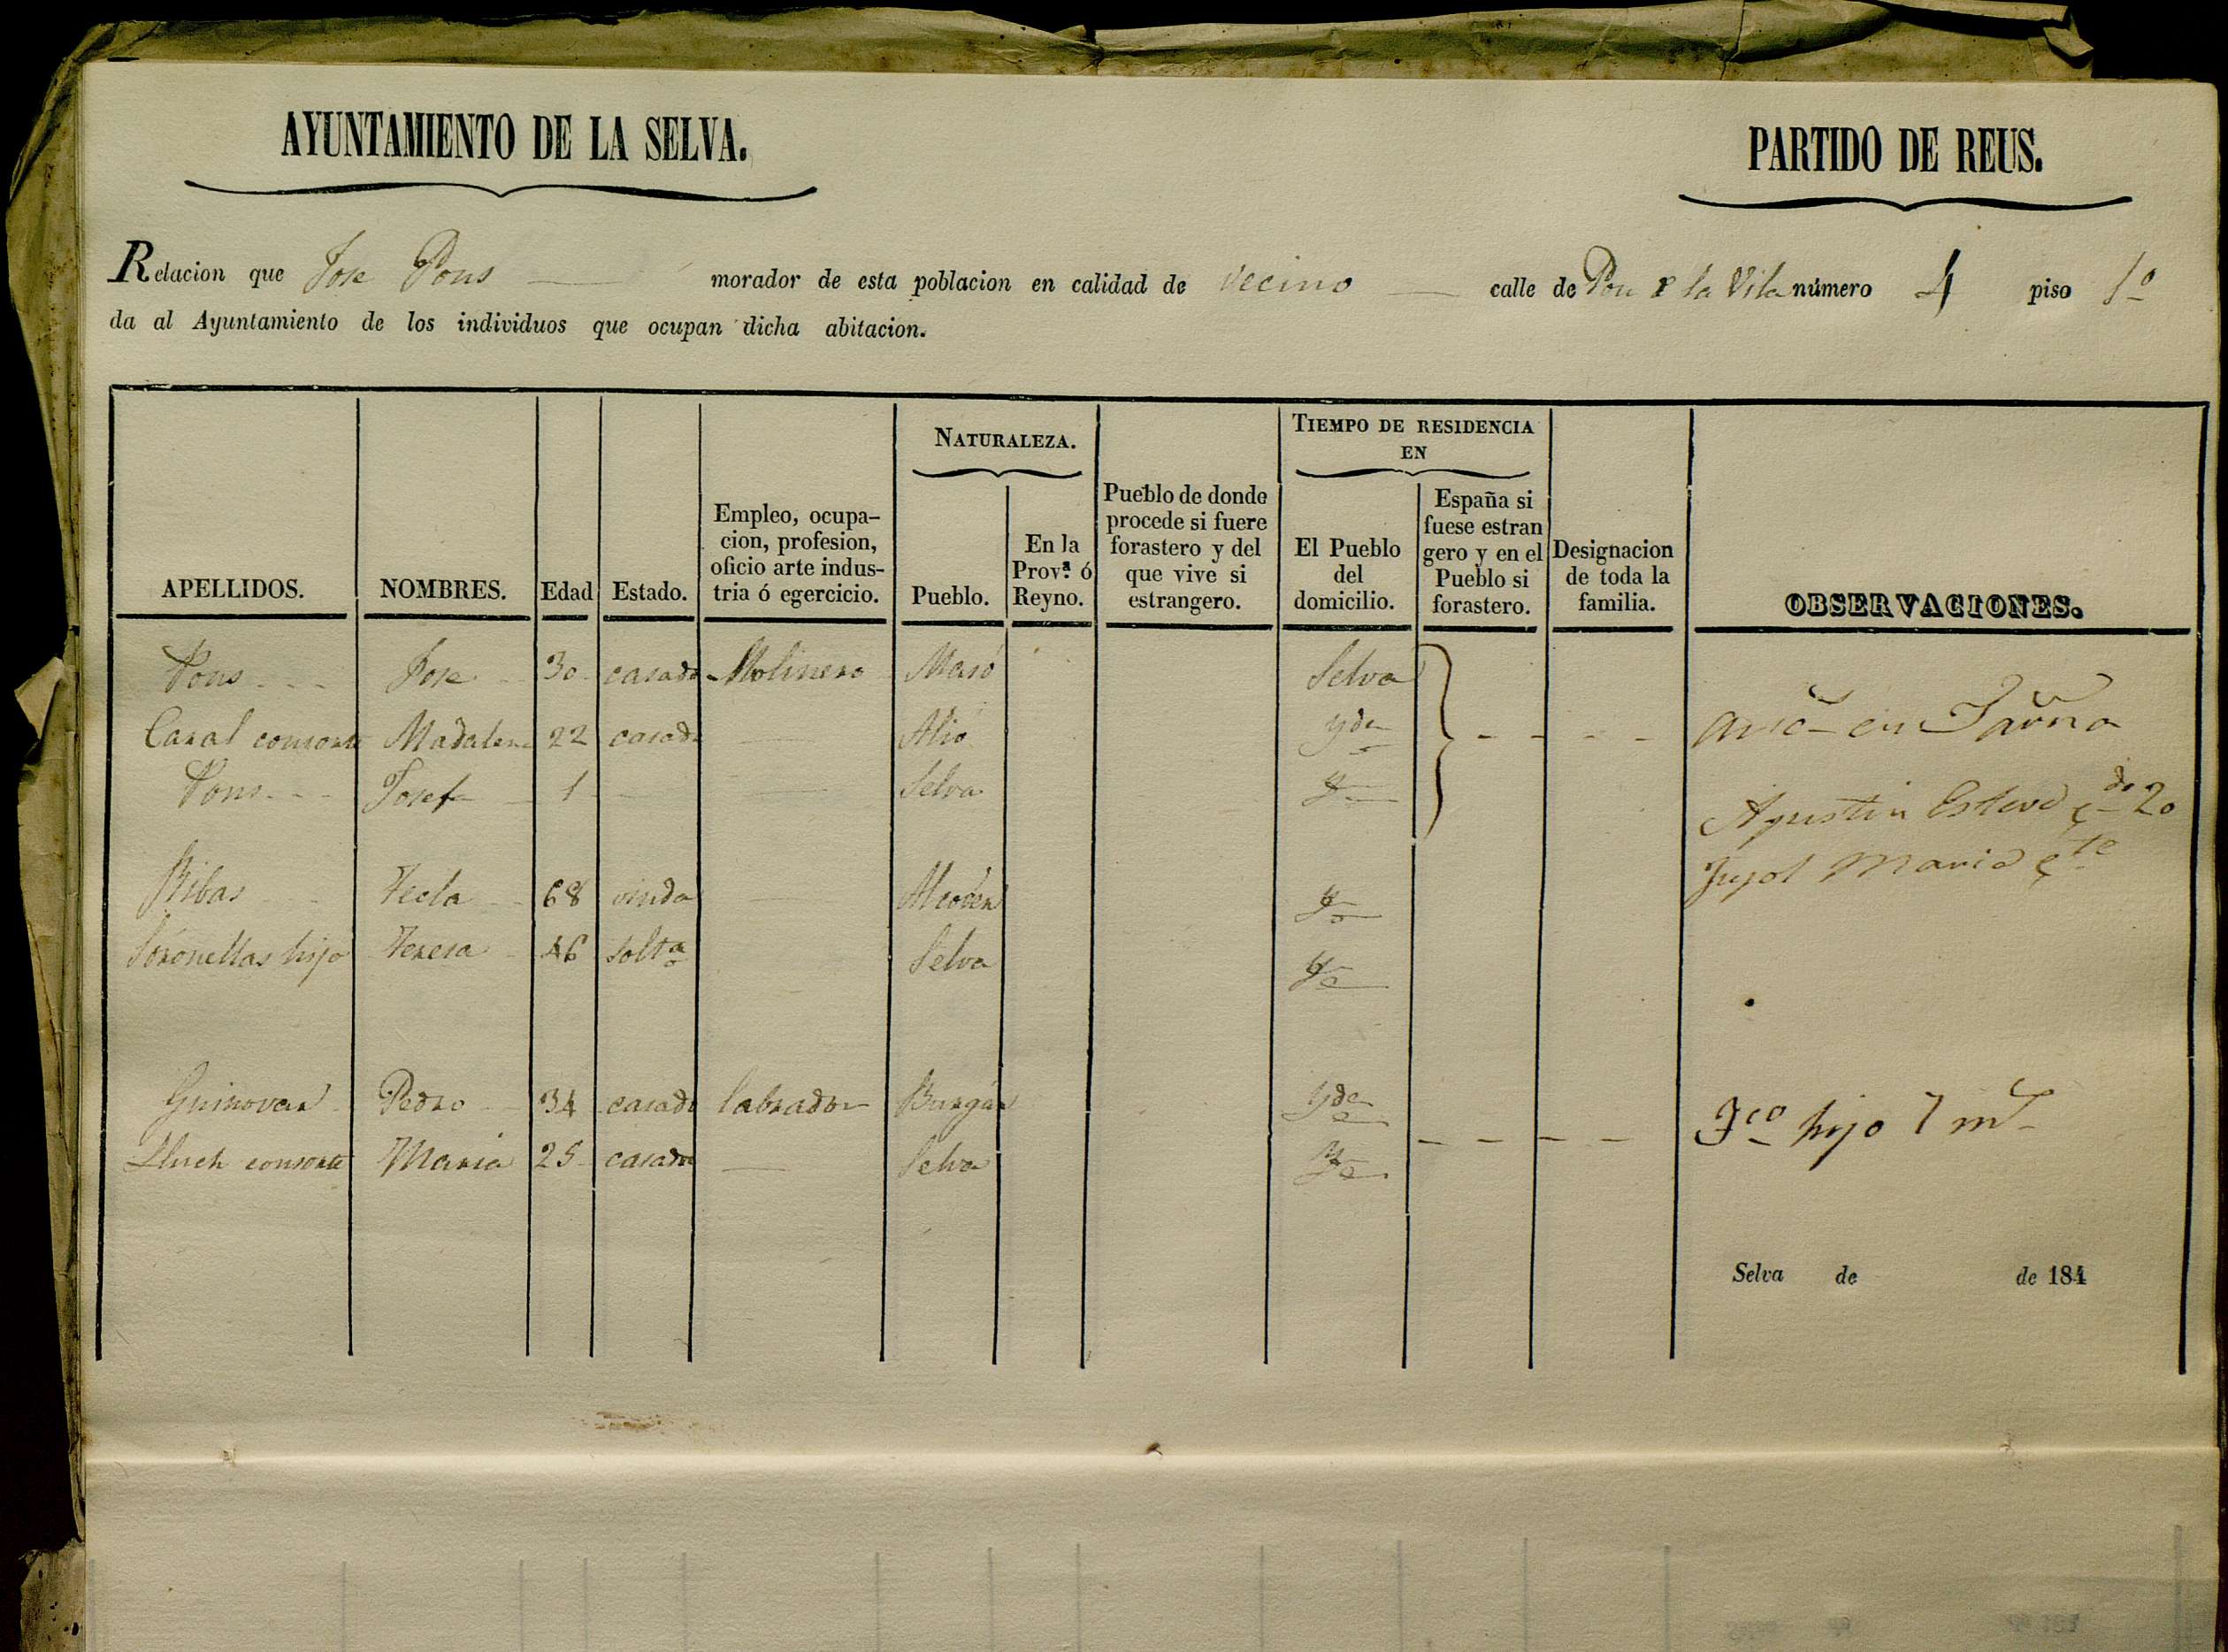 AYUNTAMIENTO DE LA SELVA.
PARTIDO DE REUS.
Relacion que Jose Pons morador de esta poblacion en calidad de vecino calle de Pou de la Vila número 4 piso 1º
da al Ayuntamiento de los individuos que ocupan dicha abitacion.
APELLIDOS. NOMBRES. Edad Estado. Empleo, ocupa-cion, profesion, oficio arte indus-tria ó egercicio. NATURALEZA. Pueblo. En la Prov.ª ó Reyno. Pueblo de donde procede si fuere forastero y del que vive si estrangero. TIEMPO DE RESIDENCIA EN El Pueblo del domicilio. España si fuese estran gero y en el Pueblo si forastero. Designacion de toda la familia. OBSERVACIONES.
Pons Jose 30 casado Molinero Masó Selva
Canal consorte Madalena 22 casada Alió yde
Pons Josefa 1 Selva
Agustin Esteve 20
Jujol Maria
Ribas Tecla 68 viuda Alcover
Soronellas hija Teresa 46 solta Selva
Guinovar Pedro 34 casado labrador yde
Lluch consorte Maria 25 casada Selva
Fco hijo 7 m
Selva de de 184